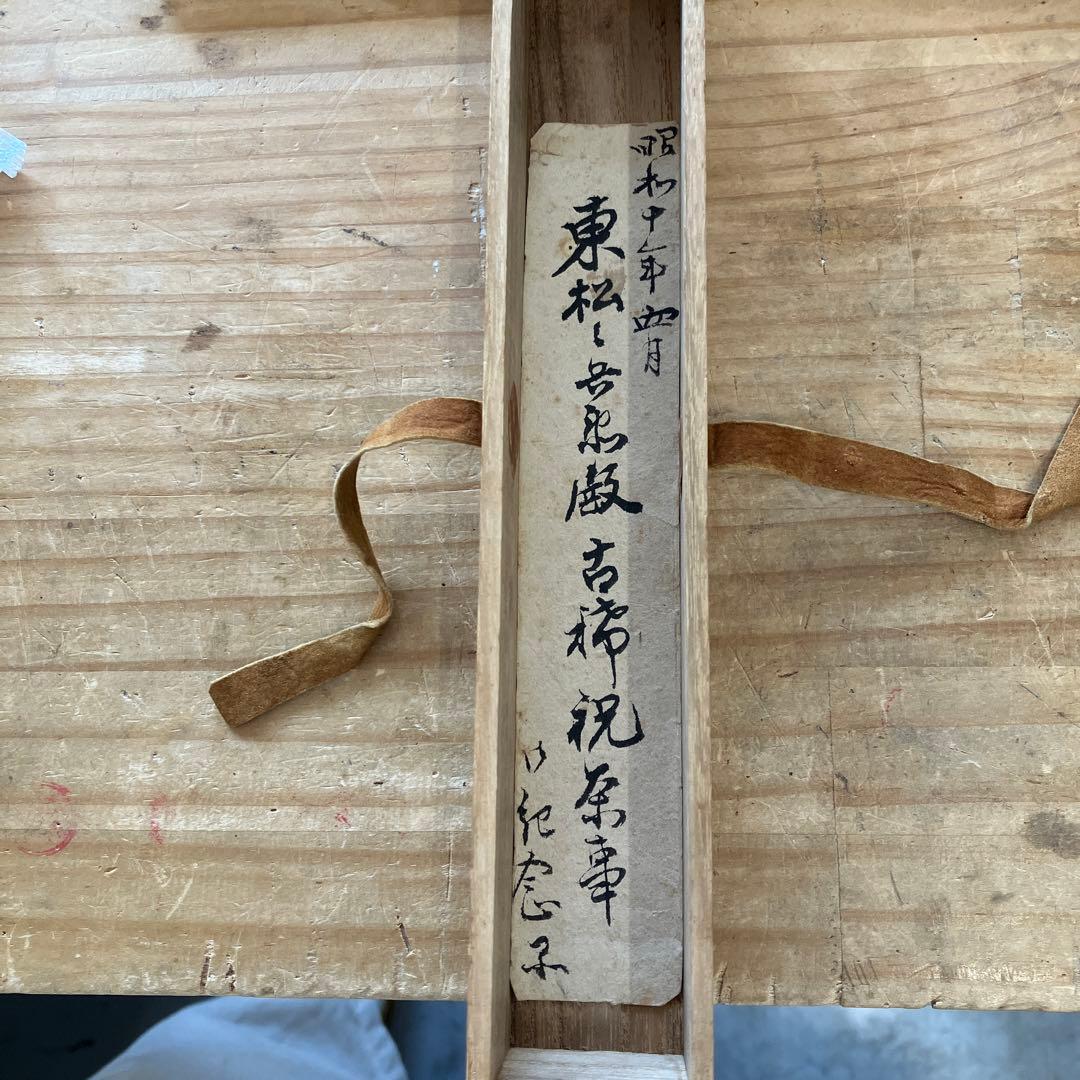 昭和十年四月
東松々兵衛殿古稀祝茶事
御紀念品